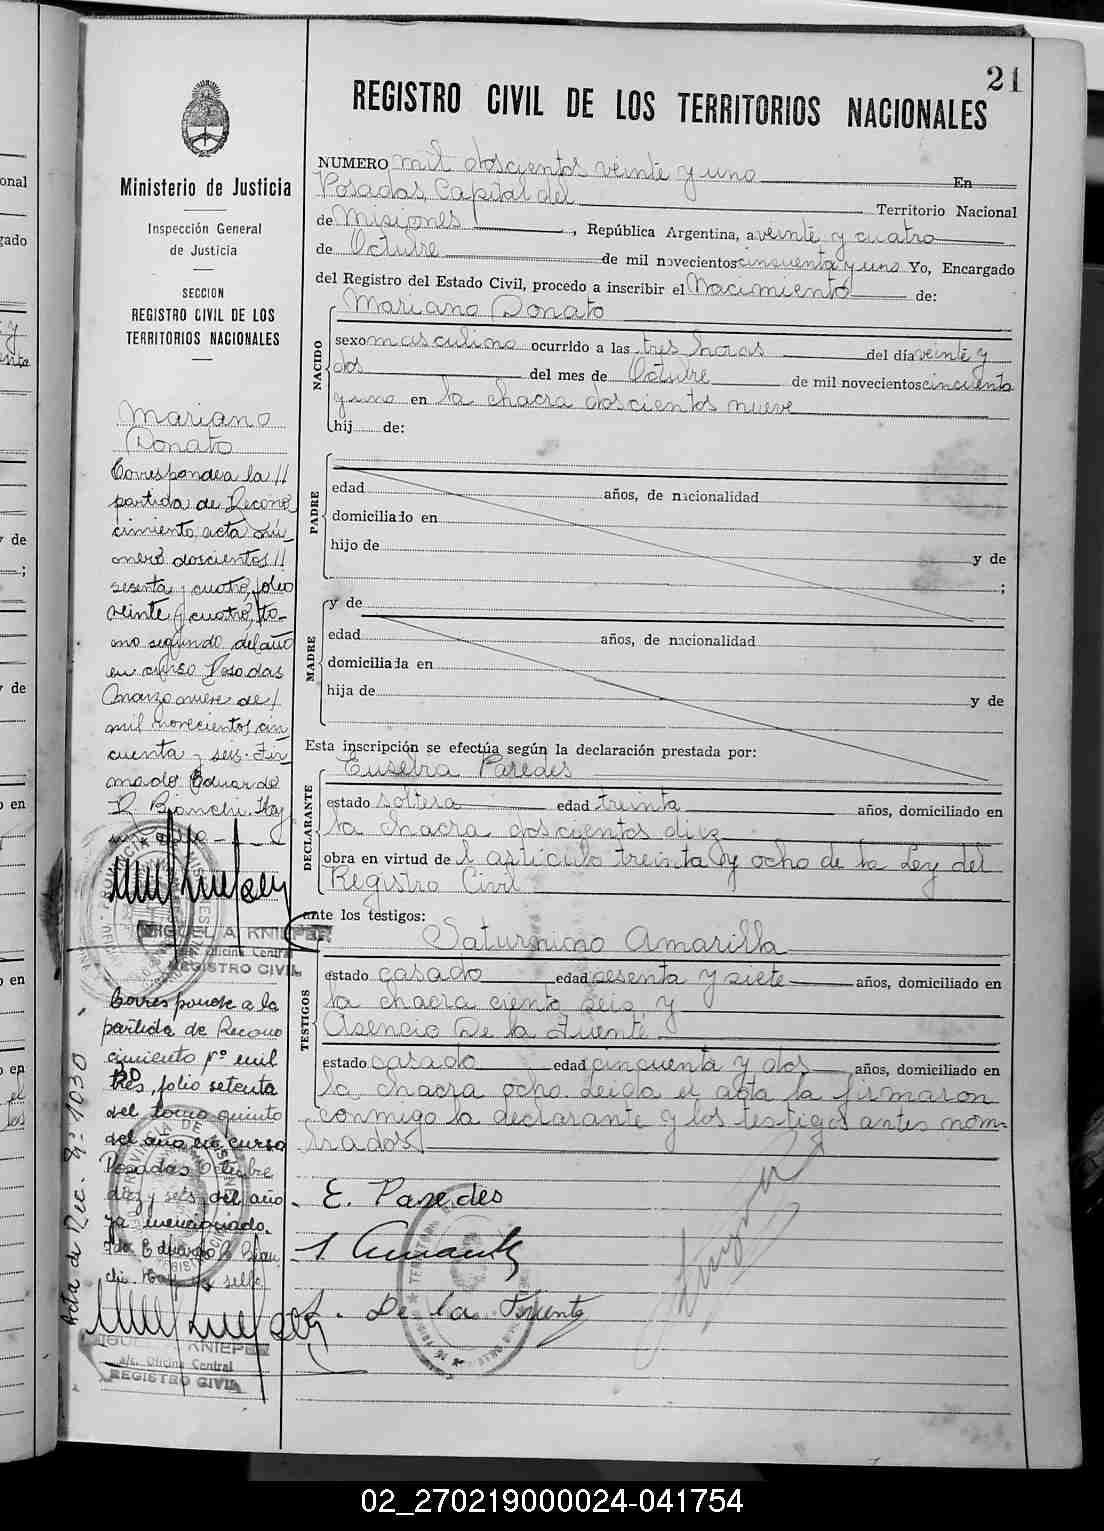 21
REGISTRO CIVIL DE LOS TERRITORIOS NACIONALES
Ministerio de Justicia
Inspección General
de Justicia
SECCION
REGISTRO CIVIL DE LOS
TERRITORIOS NACIONALES
NUMERO mil doscientos veinte y uno En
Posadas, Capital del Territorio Nacional
de Misiones, República Argentina, a veinte y cuatro
de Octubre de mil novecientos cincuenta y uno Yo, Encargado
del Registro del Estado Civil, procedo a inscribir el Nacimiento de:
NACIDO
Mariano Donato
sexo masculino ocurrido a las tres horas del día veinte y
dos del mes de Octubre de mil novecientos cincuenta
y uno en la chacra doscientos nueve
hij de:
PADRE
edad años, de nacionalidad
domiciliado en
hijo de y de
;
MADRE
y de
edad años, de nacionalidad
domiciliada en
hija de y de
Esta inscripción se efectúa según la declaración prestada por:
DECLARANTE
Eusebia Paredes
estado soltera edad treinta años, domiciliado en
la chacra doscientos diez
obra en virtud de l artículo treinta y ocho de la Ley del
Registro Civil
ante los testigos:
TESTIGOS
Saturnino Amarilla
estado casado edad sesenta y siete años, domiciliado en
la chacra ciento seis y
Asencio De la Fuente
estado casado edad cincuenta y dos años, domiciliado en
la chacra ocho. Leida el acta la firmaron
conmigo la declarante y los testigos antes nom-
brados
E. Paredes
De la Fuente
Mariano
Donato
Corresponde a la //
partida de Recono
cimiento, acta nú-
mero doscientos //
sesenta y cuatro, folio
veinte y cuatro, to-
mo segundo del año
en curso Posadas
Marzo nueve de /
mil novecientos cin
cuenta y seis. Fir-
mado Eduardo
R. Bianchi. Hay
un sello
MIGUEL A. KNIEPER
Oficina Central
REGISTRO CIVIL
Corresponde a la
partida de Recono
cimiento nº mil
tres, folio setenta
del tomo quinto
del año en curso
Posadas Octubre
diez y seis del año
ya mencionado.
Fdo Eduardo R. Bian
chi. Hay un sello
MIGUEL A. KNIEPER
a/c. Oficina Central
REGISTRO CIVIL
Acta de Rec. Nº 1030
02_270219000024-041754